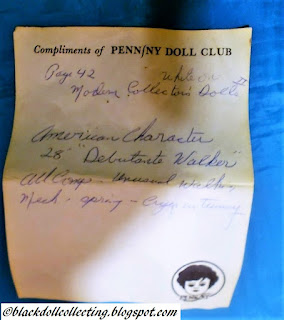 Compliments of PENN/NY DOLL CLUB
Page 42
Modern Collector's Dolls
American Character
28" "Debutante Walker"
All Comp - Unusual Walking
Mech - spring - Cryer in tummy
©blackdollcollecting.blogspot.com